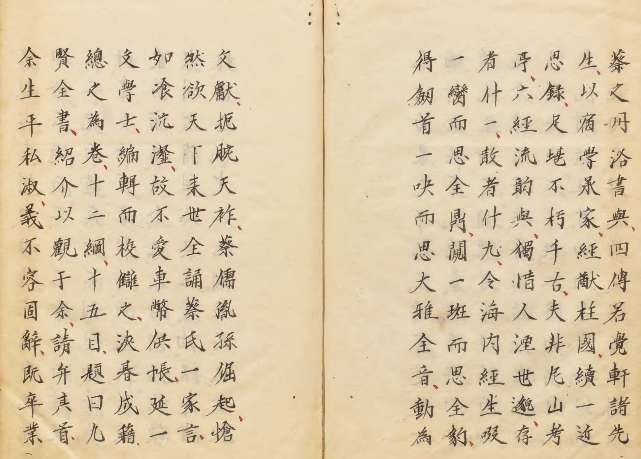 蔡之丹浴書與四傳君覺軒諸先
生以宿學承家經猷柱國續一近
思錄足堪不朽千古夫非尼山考
亭六經流韵與獨惜人湮世邈存
者什一散者什九令海内經生啜
一臠而思全鼎闚一班而思全豹
得劒首一吷而思大雅全音動為
文獻扼腕天祚蔡儒胤孫倔起愴
然欲天下来世全誦蔡氏一家言
如飡沆瀣故不愛車幣供帳延一
文學士編輯而校讎之決朞成籍
總之為卷十二綱十五目題曰九
賢全書紹介以觀于余請弁其首
余生平私淑義不容固辭既卒業